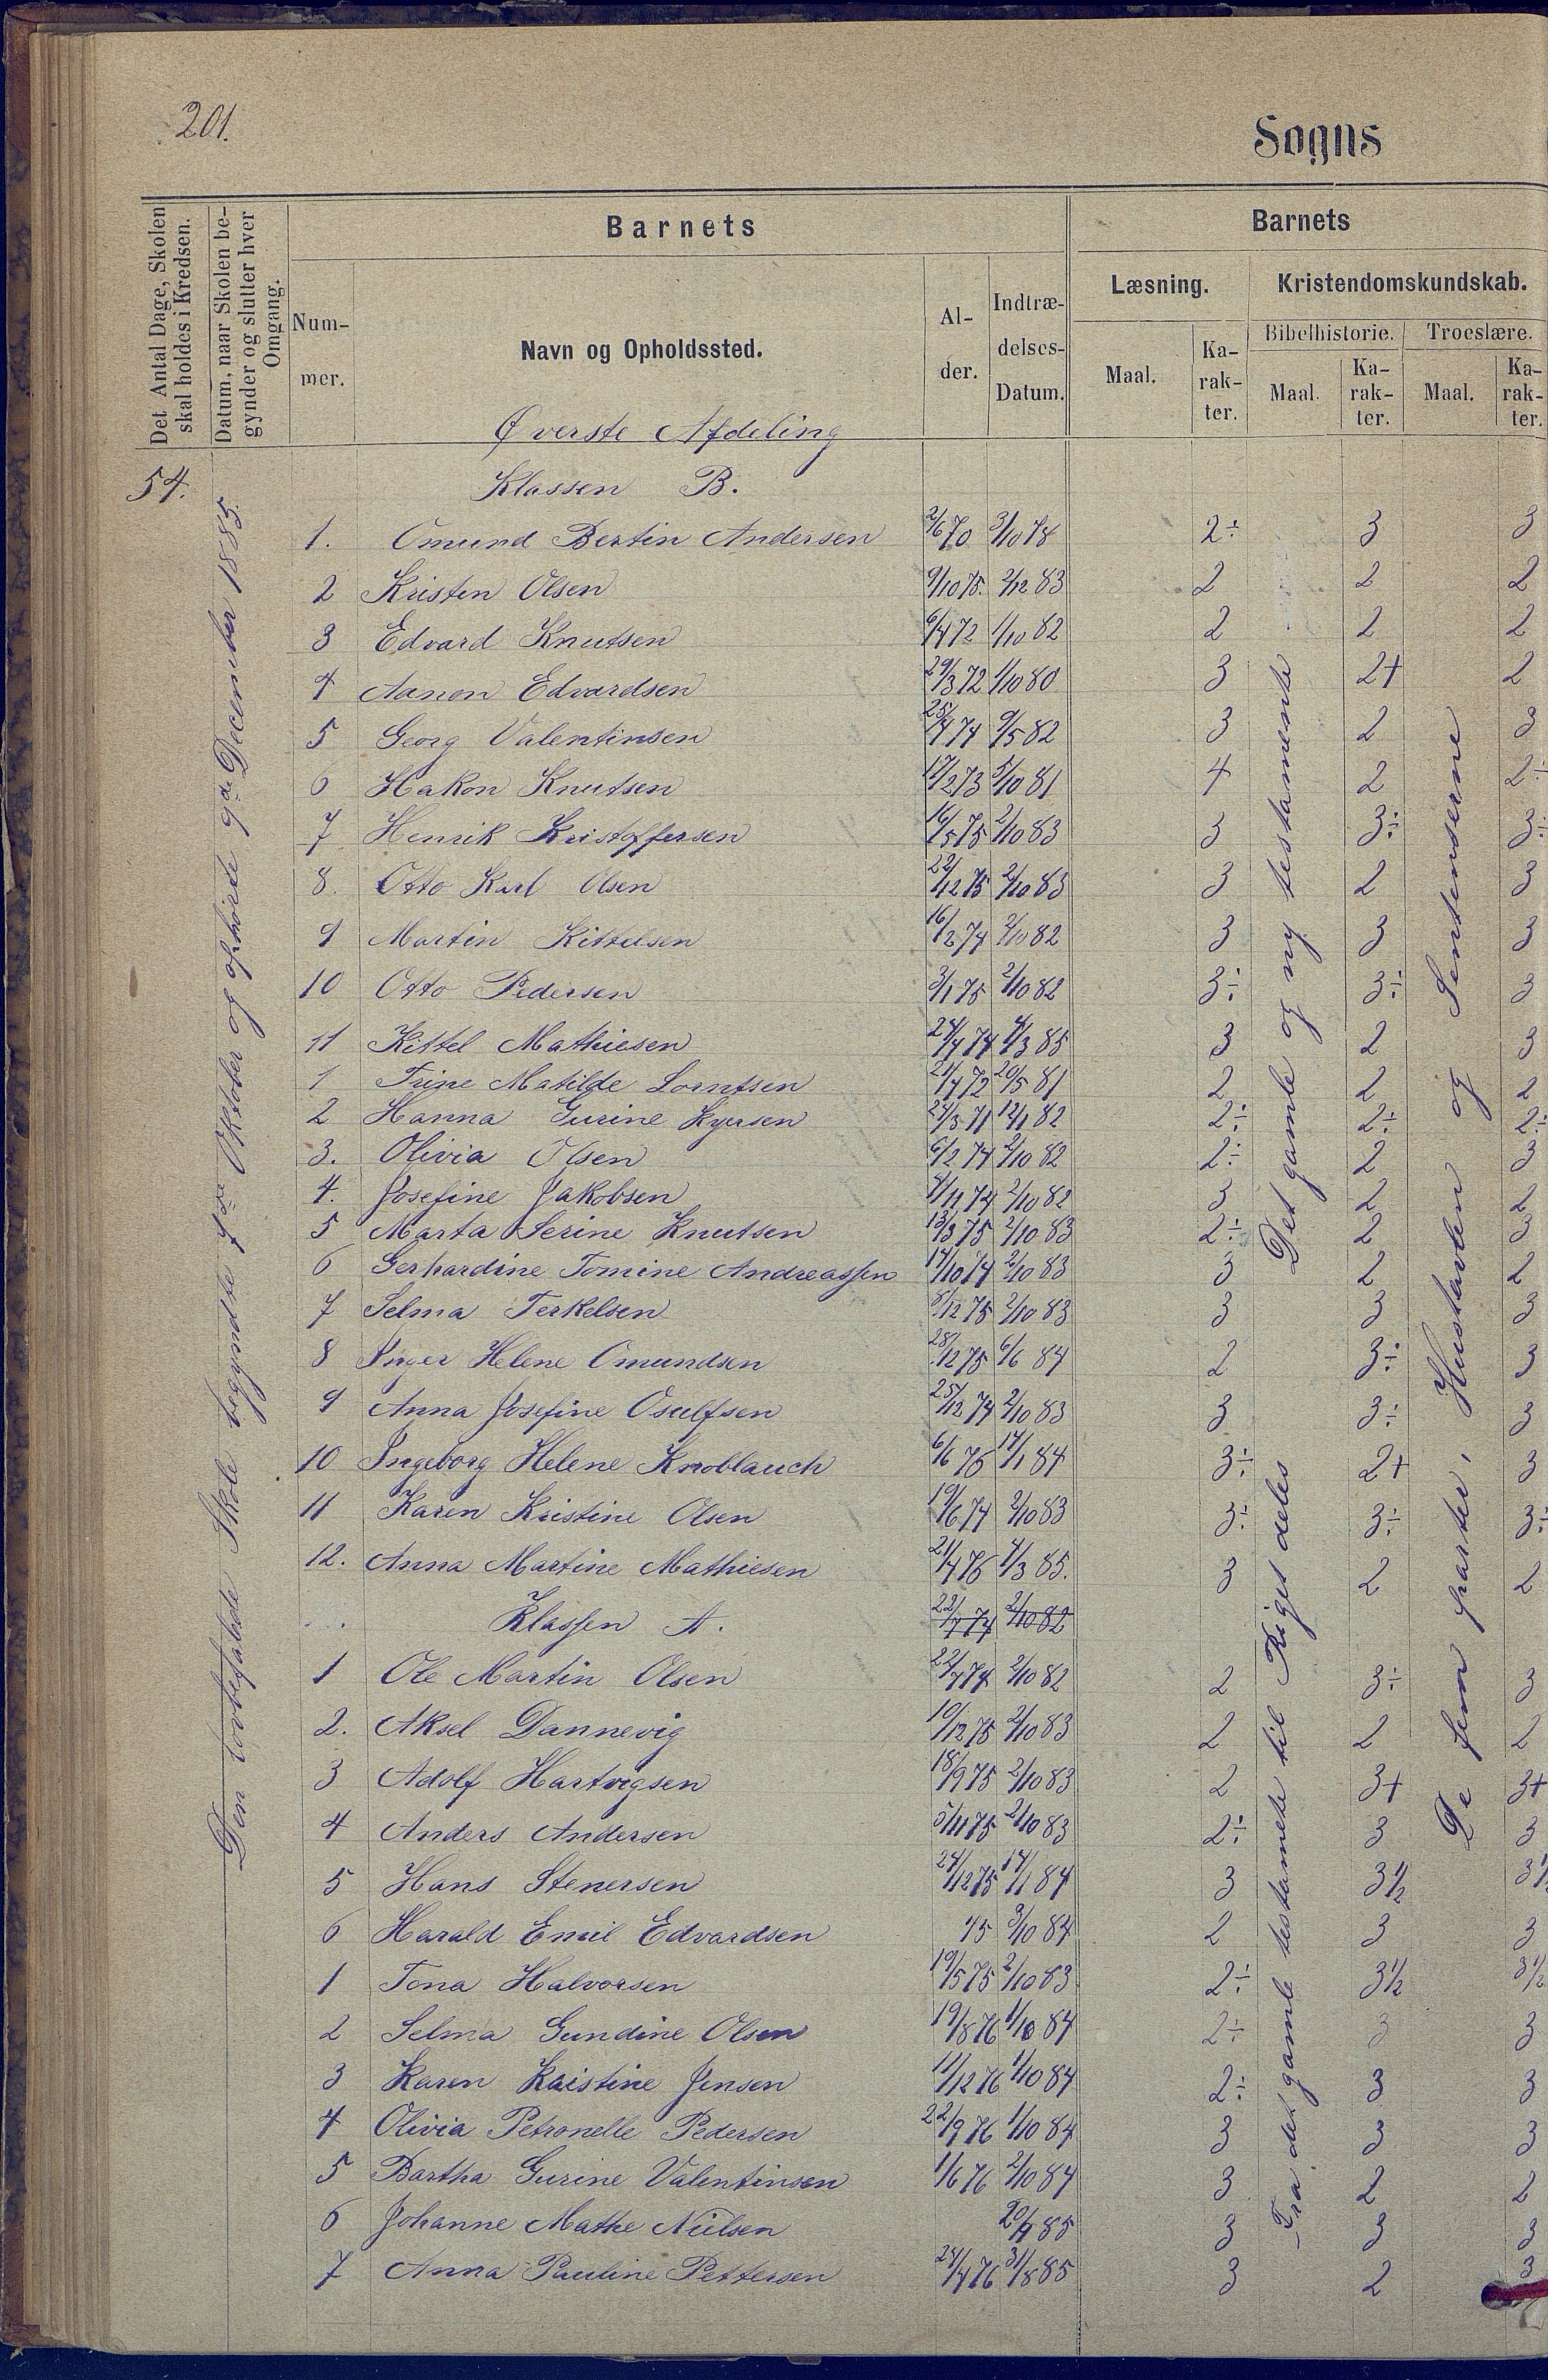 201.
Sogns
Det Antal Dage, Skolen skal holdes i Kredsen.
Datum, naar Skolen begynder og slutter hver Omgang.
Barnets
Barnets
Nummer.
Navn og Opholdssted.
Alder.
Indtrædelses-Datum.
Læsning.
Kristendomskundskab.
Maal.
Karakter.
Bibelhistorie.
Troeslære.
Maal.
Karakter.
Maal.
Karakter.
Øverste Afdeling
54.
Klassen B.
1. Omund Bertin Andersen 2/6 70 3/10 78 2÷ 3 3
2 Kristen Olsen 9/10 75. 2/12 83 2 2 2
3 Edvard Knutsen 6/4 72 1/10 82 2 2 2
4 Aanon Edvardsen 29/3 72 1/10 80 3 2+ 2
5 Georg Valentinsen 25/4 74 9/5 82 3 2 3
6 Hakon Knutsen 17/2 73 5/10 81 4 2 2÷
7 Henrik Kristoffersen 16/5 75 2/10 83 3 3÷ 3÷
8. Otto Karl Olsen 22/12 75 2/10 83 3 2 3
9 Martin Kittelsen 16/2 74 2/10 82 3 3 3
10 Otto Pedersen 3/1 75 2/10 82 3÷ 3÷ 3
11 Kittel Mathiesen 24/4 74 4/3 85 3 2 3
1 Trine Matilde Lorntsen 21/4 72 20/5 81 2 2 2
2 Hanna Gurine 24/3 71 12/1 82 2÷ 2÷ 2÷
3. Olivia Olsen 6/2 74 2/10 82 2÷ 2 3
4. Josefine Jakobsen 4/11 74 2/10 82 3 2 2
5 Marta Serine Knutsen 13/3 75 2/10 83 2÷ 2 3
6 Gerhardine Tomine Andreassen 14/10 74 2/10 83 3 2 2
7 Selma Terkelsen 5/12 75 2/10 83 3 3 3
8 Inger Helene Omundsen 28/12 75 6/6 84 2 3÷ 3
9 Anna Josefine Osulfsen 25/12 74 2/10 83 3 3÷ 3
10 Ingeborg Helene Knoblauch 6/6 76 14/1 84 3÷ 2+ 3
11 Karen Kristine Olsen 19/6 74 2/10 83 3÷ 3÷ 3÷
12. Anna Martine Mathiesen 21/4 76 4/3 85. 3 2 2
Klassen A. 22/7 74 2/10 82
1 Ole Martin Olsen 22/7 74 2/10 82 2 3÷ 3
2. Aksel Dannevig 10/12 75 2/10 83 2 2 2
3 Adolf Hartvigsen 18/9 75 2/10 83 2 3+ 3+
4 Anders Andersen 5/11 75 2/10 83 2÷ 3 3
5 Hans Stenersen 24/12 75 14/1 84 3 3½ 3½
6 Harald Emil Edvardsen 75 3/10 84 2 3 3
1 Tona Halvorsen 19/5 75 2/10 83 2÷ 3½ 3½
2 Selma Gundine Olsen 19/8 76 1/10 84 2÷ 3 3
3 Karen Kristine Jensen 11/12 76 1/10 84 2÷ 3 3
4 Olivia Petronelle Pedersen 22/9 76 1/10 84 3 3 3
5 Bartha Gurine Valentinsen 1/6 76 2/10 84 3 2 2
6 Johanne Mathe Nielsen 20/4 85 3 3 3
7 Anna Pauline Pettersen 24/4 76 31/8 85 3 2 3
Den lovbefalede Skole begyndte 7de Oktober og ophørte 9de December 1885.
Det gamle og ny testamente
Fra det gamle testamente til Riget deles
De fem parter, Hustavlen og Sentenserne